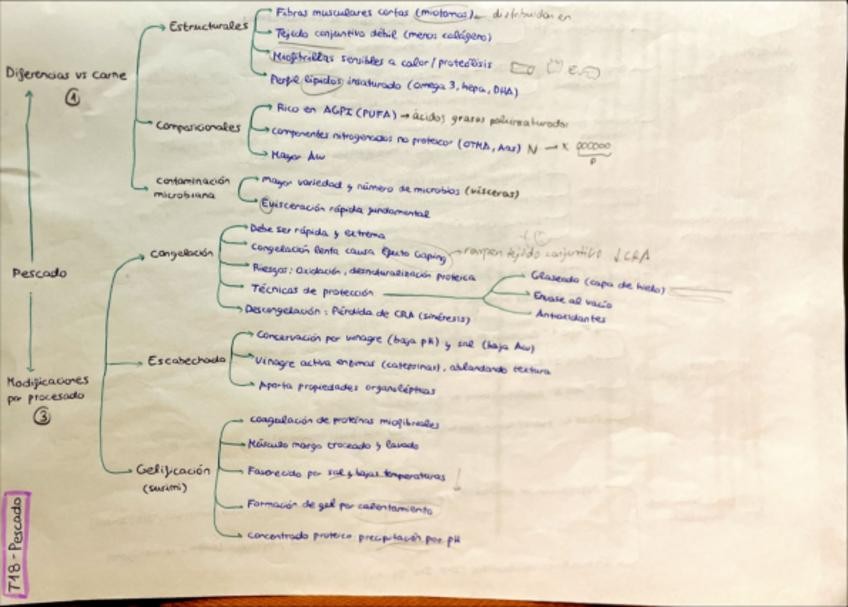 Fibras musculares cortas (miotomos) distribuidas en
Estructurales
Tejido conjuntivo débil (menos colágeno)
Miofibrillas sensibles a calor/proteólisis
Diferencias vs carne
①
Perfil lípidos insaturado (omega 3, hepa, DHA)
Rico en AGPI (PUFA) → ácidos grasos poliinsaturados
Composicionales
componentes nitrogenados no proteicos (OTMA, Aas) N
Mayor Aw
P
contaminación
microbiana
Mayor variedad y número de microbios (vísceras)
Evisceración rápida fundamental
Debe ser rápida y extrema
Congelación
Congelación lenta causa Efecto Gaping rompen tejido conjuntivo ↓CRA
Pescado
Riesgos: Oxidación, desnaturalización proteica
Técnicas de protección
Glaseado (capa de hielo)
Envase al vacío
Antioxidantes
Descongelación: Pérdida de CRA (sinéresis)
Concervación por vinagre (baja pH) y sal (baja Aw)
Escabechado
Vinagre activa enzimas (catepsinas), ablandando textura
Aporta propiedades organolépticas
Modificaciones
por procesado
③
coagulación de proteínas miofibrilares
Músculo magro troceado y lavado
Gelificación
(surimi)
Favorecido por sal y bajas temperaturas ↓
Formación de gel por calentamiento
concentrado proteico precipitación por pH
T18-Pescado